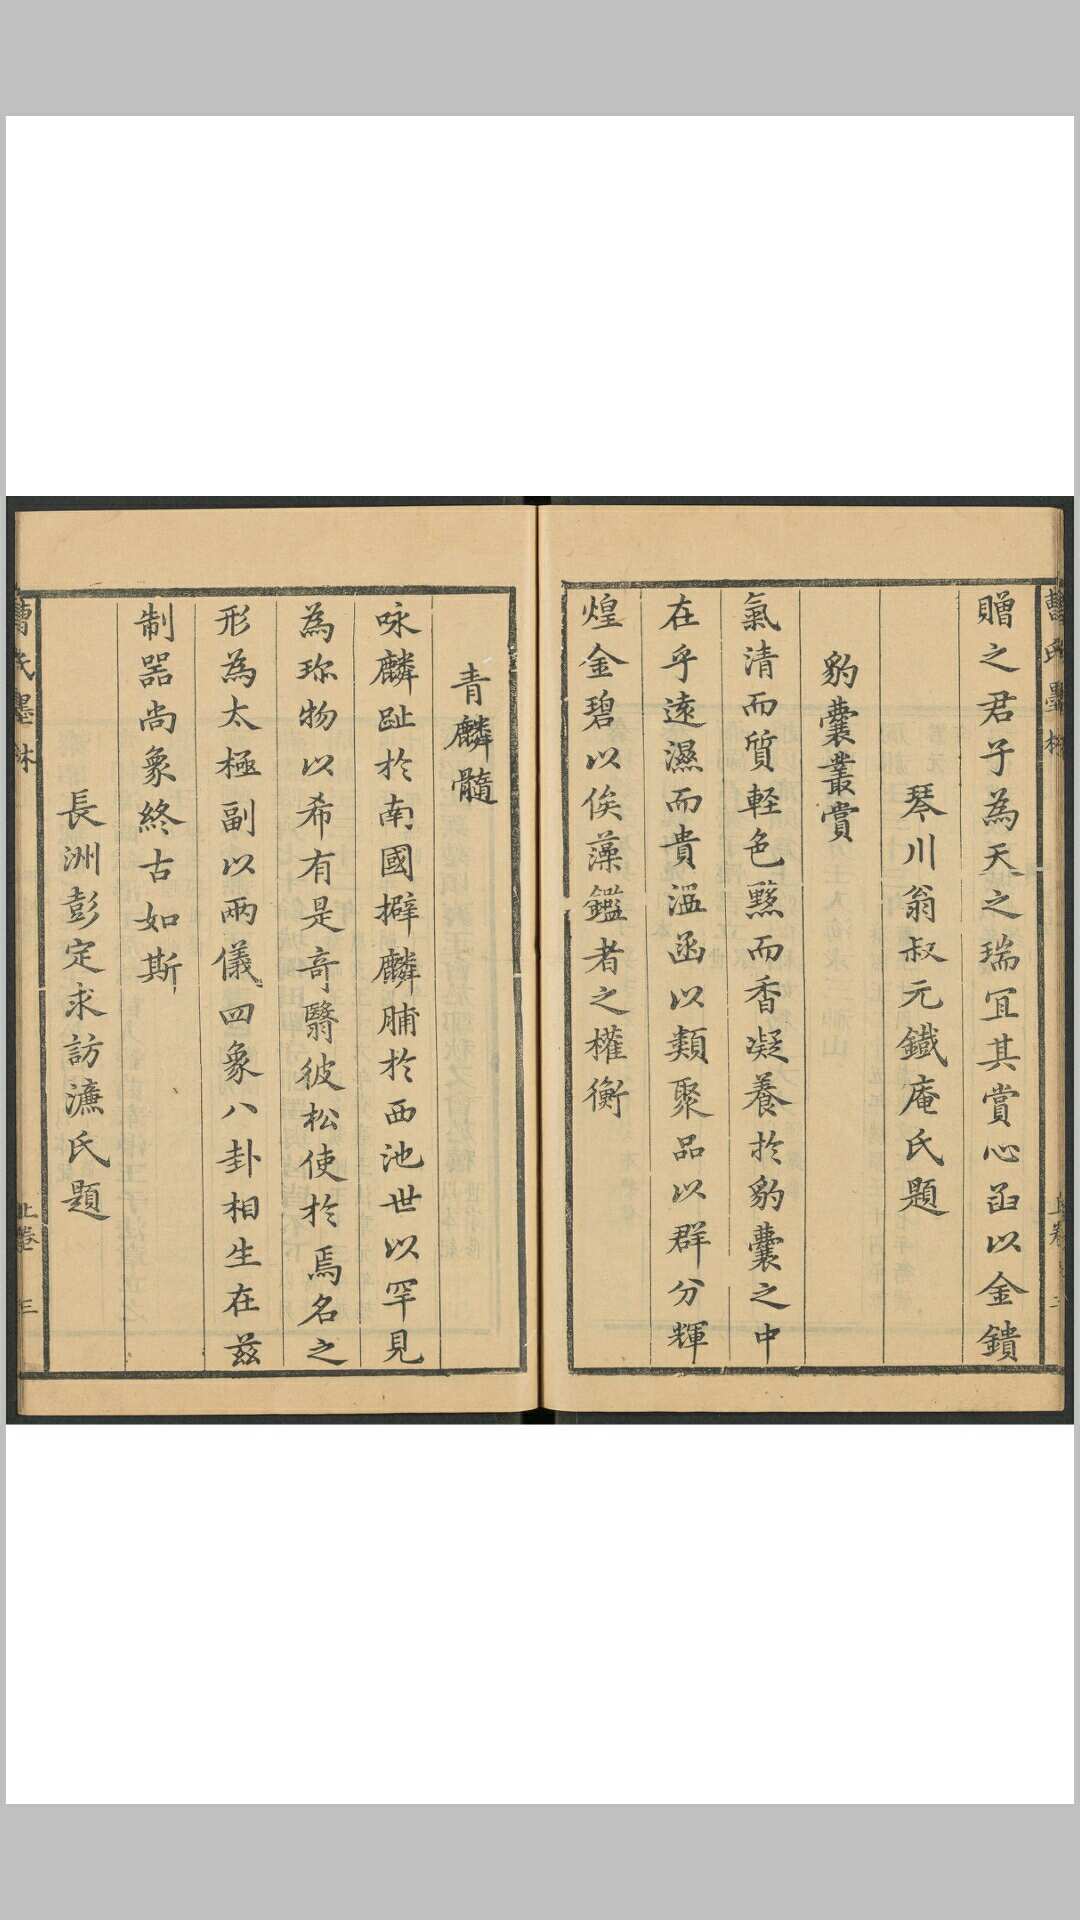 曹氏墨林
上卷
贈之君子為天之瑞冝其賞心函以金鐀
琴川翁叔元鐵庵氏題
豹囊叢賞
氣清而質軽色黝而香凝養於豹囊之中
在乎遠濕而貴温函以類聚品以群分輝
煌金碧以俟藻鑑者之權衡
青麟髓
咏麟趾於南國擗麟脯於西池世以罕見
為珎物以希有是奇翳彼松使於焉名之
形為太極副以兩儀四象八卦相生在茲
制噐尚象終古如斯
長洲彭定求訪濂氏題
曹氏墨林
上卷
三